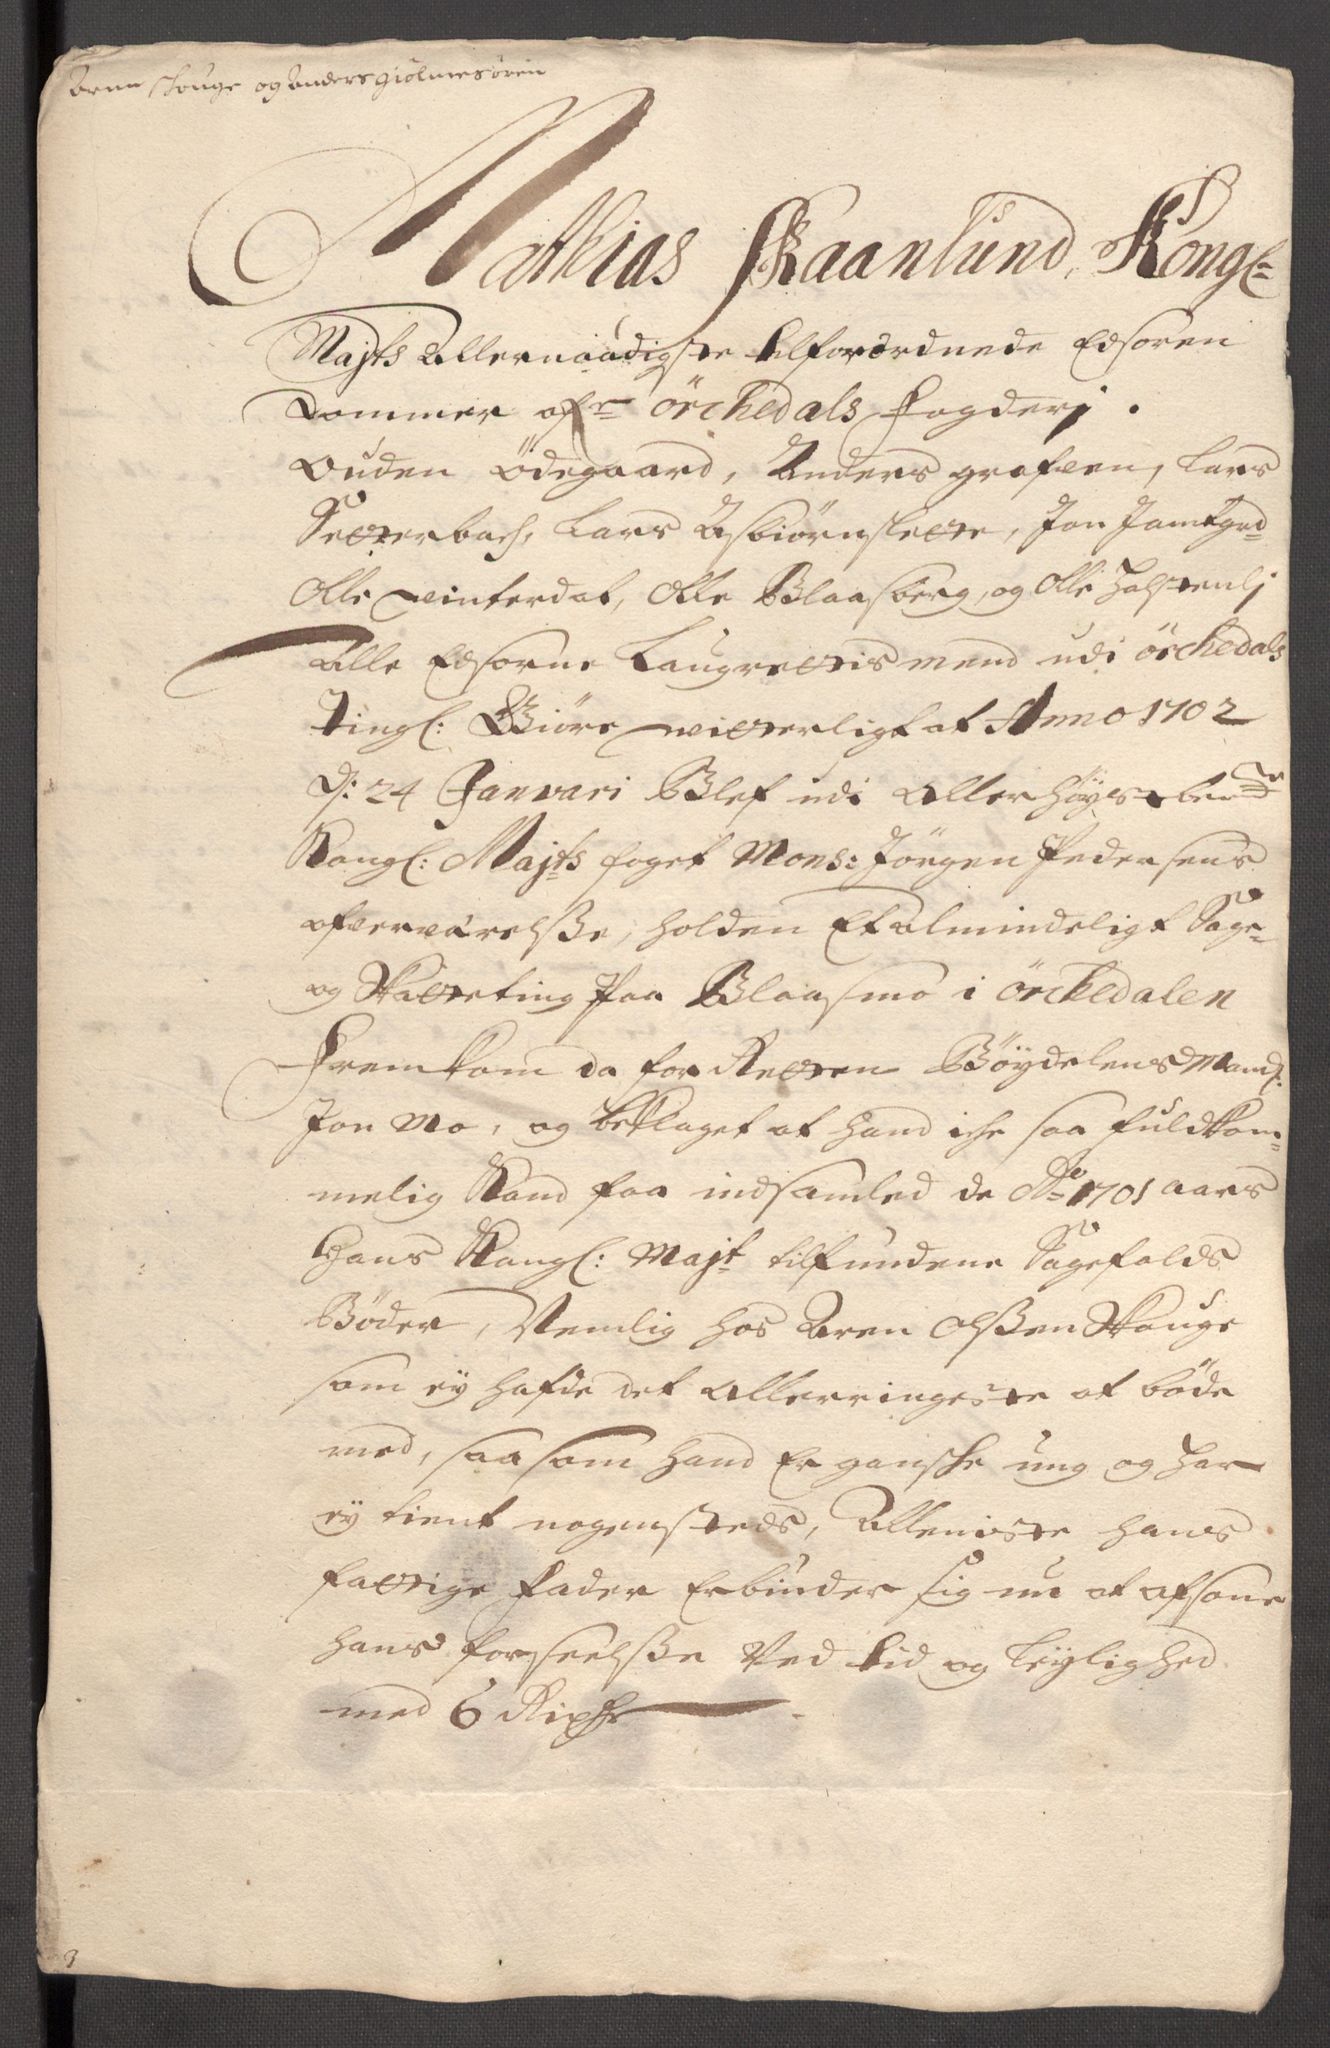 Aren Schouge og Anders Giölmesören
Mathias Skaanlund, Kongl=
Majts Allernaadigste tilforordnede Edsoren
Dommer ofr Örchedals Fogderj.
Ouden Ödegaard, Anders grofven, Lars
Setterbach, Lars Asbiörnslette, Jon Jamtgrd
Olle vinterdal, Olle Blaasberg, og Olle Holstenlj
Alle Edsorne Laugrettis mend udi örchedals
Tingl: Giöre vitterligt at Anno 1702
D: 24 Januari Blef udi Allerhöystbente
Kongl: Majts foget Mons: Jörgen Pedersens
ofverværelsße, holden Et Almindeligt Sage-
og Skatteting Paa Blaasmo i örckedalen
Fremkom da for Retten Böydelens Mand:
Jon Mo, og beklaget at hand iche saa fuldkom=
melig Kand faa indsamled de Ao 1701 aars
Hans Kongl: Majt tilfundene Sagefalds
Böder, Nemlig hos Aren Olsßen Skouge
som ey hafde det Allerringeste at böde
med, saasom hand Er gansche ung og har
ey tient nogensteds, Alleniste hans
fattige Fader Erbinder sig nu at afsone
hans forseelsße Ved tid og leylighed
med 6 Rixdr
3